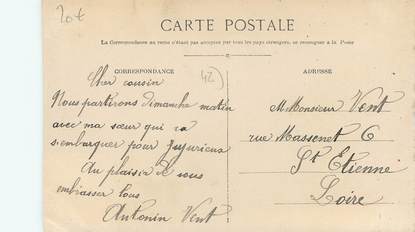 20€
CARTE POSTALE
La Correspondance au recto n'étant pas acceptée par tous les pays étrangers, se renseigner à la Poste
CORRESPONDANCE
42
ADRESSE
Cher cousin
Nous partirons dimanche matin
avec ma sœur qui va
s'embarquer pour Jujurieux
Au plaisir de vous
embrasser tous
Antonin Vent
M. Monsieur Vent
rue Massenet 6
St Etienne
Loire